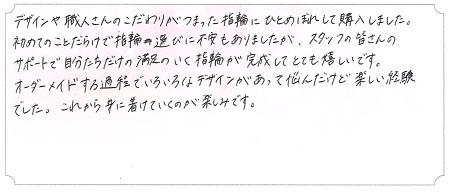 デザインや職人さんのこだわりがつまった指輪にひとめぼれして購入しました。
初めてのことだらけで指輪の選びに不安もありましたが、スタッフの皆さんの
サポートで自分たちだけの満足のいく指輪が完成してとても嬉しいです。
オーダーメイドする過程でいろいろなデザインがあって悩んだけど楽しい経験
でした。これから身に着けていくのが楽しみです。